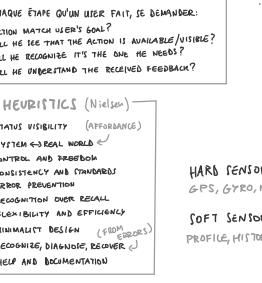 AQUE ÉTAPE QU'UN USER FAIT, SE DEMANDER:
CTION MATCH USER'S GOAL?
LL HE SEE THAT THE ACTION IS AVAILABLE/VISIBLE?
LL HE RECOGNIZE IT'S THE ONE HE NEEDS?
LL HE UNDERSTAND THE RECEIVED FEEDBACK?
HEURISTICS (Nielsen)
TATUS VISIBILITY (AFFORDANCE)
YSTEM ↔ REAL WORLD
ONTROL AND FREEDOM
ONSISTENCY AND STANDARDS
RROR PREVENTION
ECOGNITION OVER RECALL
LEXIBILITY AND EFFICIENCY
INIMALIST DESIGN (FROM ERRORS)
ECOGNIZE, DIAGNOSE, RECOVER
HELP AND DOCUMENTATION
HARD SENSO
GPS, GYRO,
SOFT SENSO
PROFILE, HISTO